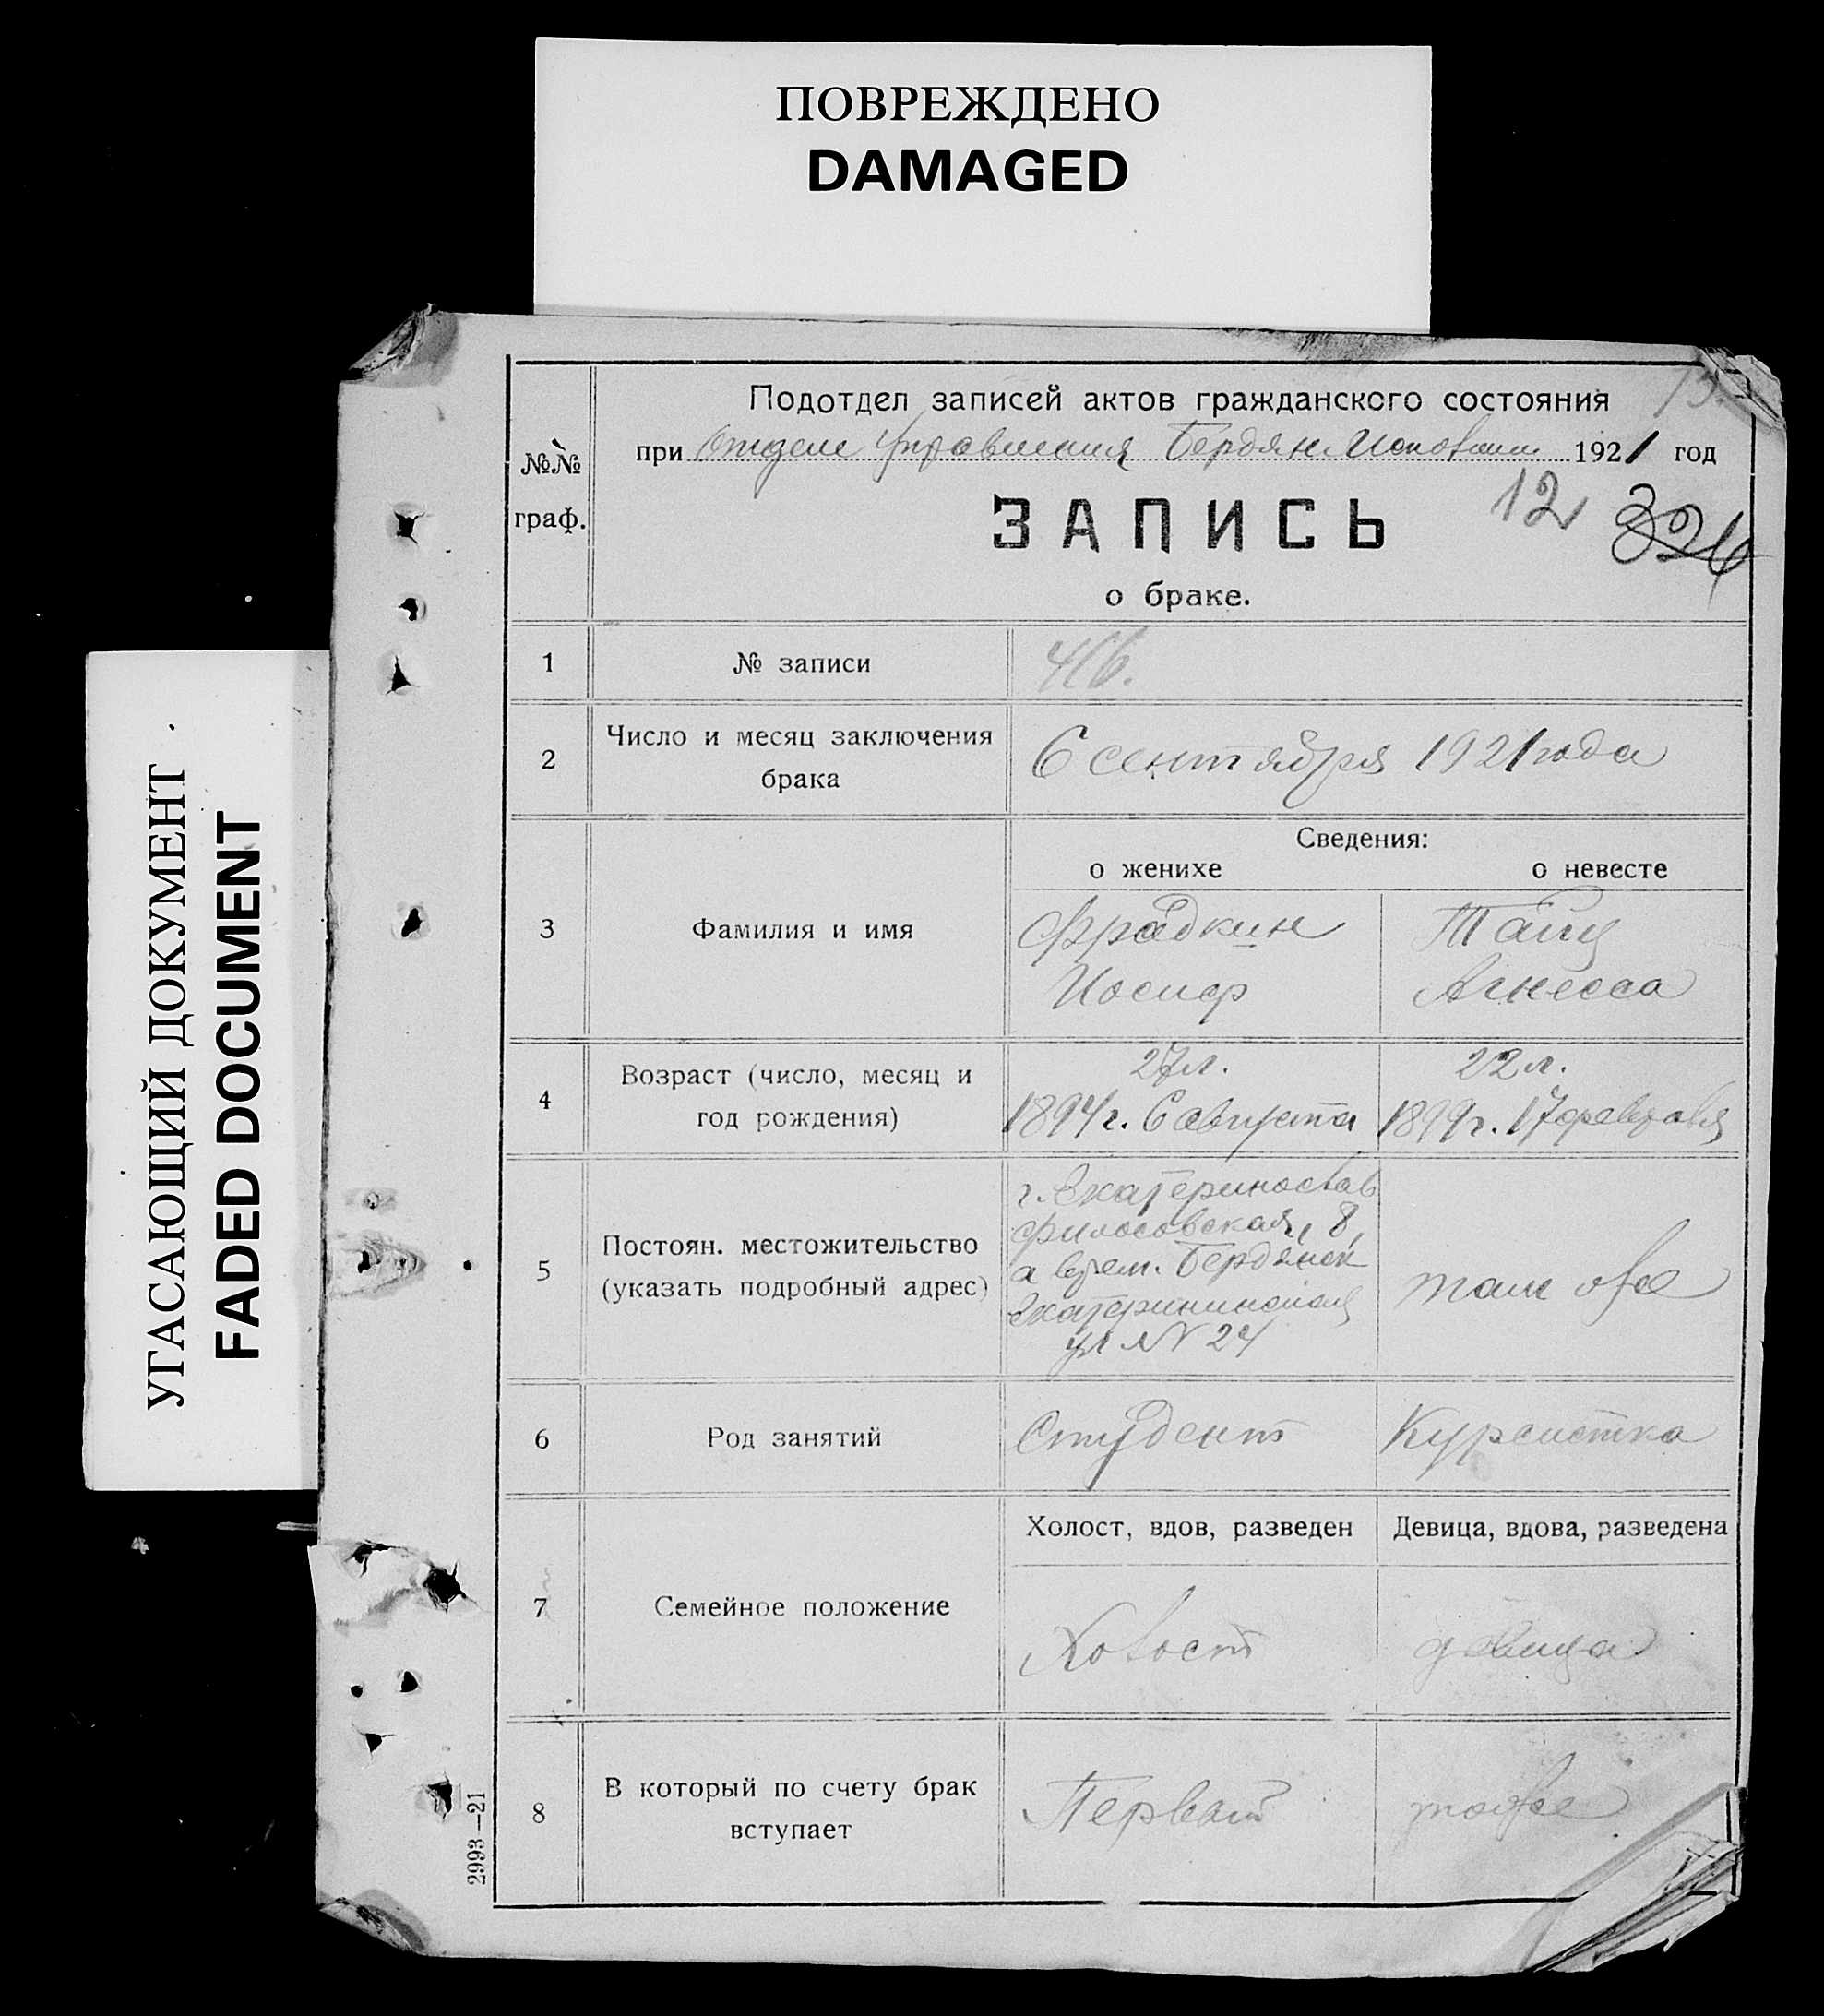 ПОВРЕЖДЕНО
DAMAGED
УГАСАЮЩИЙ ДОКУМЕНТ
FADED DOCUMENT
Подотдел записей актов гражданского состояния
№№ граф.
при Отделе Управления Бердян. 1921 год
12 324
ЗАПИСЬ
о браке.
1 № записи 416.
2 Число и месяц заключения брака 6 сентября 1921 года
Сведения:
о женихе о невесте
3 Фамилия и имя
Фрадкин Тайц
Иосиф Агнесса
4 Возраст (число, месяц и год рождения)
27 л. 22 л.
1894 г. 6 августа 1899 г. 17 февраля
5 Постоян. местожительство (указать подробный адрес)
г. Екатеринослав
Философская, 8,
а врем. Бердянск
Екатерининская
ул № 24
там же
6 Род занятий Студент Курсистка
Холост, вдов, разведен Девица, вдова, разведена
7 Семейное положение Холост девица
8 В который по счету брак вступает Первый тоже
2993—21